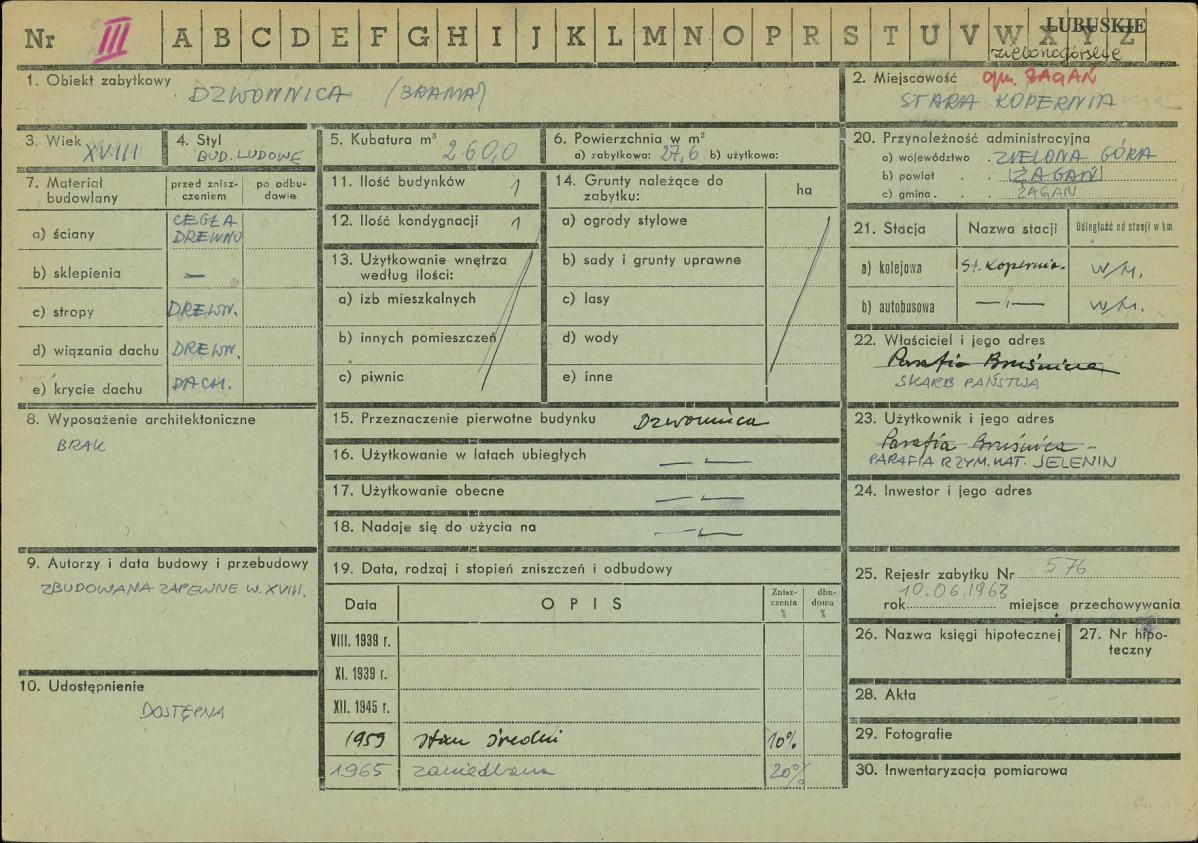 Nr III A B C D E F G H I J K L M N O P R S T U V W X Y Z LUBUSKIE
zielonogórskie
1. Obiekt zabytkowy DZWONNICA (BRAMA)
2. Miejscowość gm. ŻAGAŃ
STARA KOPERNIA
3. Wiek XVIII
4. Styl BUD. LUDOWE
5. Kubatura m³ 260,0
6. Powierzchnia w m²
a) zabytkowa: 27,6 b) użytkowa:
20. Przynależność administracyjna
a) województwo ZIELONA GÓRA
b) powiat ŻAGAŃ
c) gmina ŻAGAŃ
7. Materiał budowlany
przed zniszczeniem
po odbudowie
a) ściany CEGŁA DREWNO
b) sklepienia —
c) stropy DREWN.
d) wiązania dachu DREWN.
e) krycie dachu DACH.
11. Ilość budynków 1
12. Ilość kondygnacji 1
13. Użytkowanie wnętrza
według ilości:
a) izb mieszkalnych
b) innych pomieszczeń
c) piwnic
14. Grunty należące do
zabytku:
ha
a) ogrody stylowe
b) sady i grunty uprawne
c) lasy
d) wody
e) inne
21. Stacja Nazwa stacji Odległość od stacji w km
a) kolejowa St. Kopernia w/m.
b) autobusowa —"— w/m.
22. Właściciel i jego adres
Parafia Bruśnica
SKARB PAŃSTWA
8. Wyposażenie architektoniczne
BRAK
15. Przeznaczenie pierwotne budynku Dzwonnica
16. Użytkowanie w latach ubiegłych —"—
17. Użytkowanie obecne —"—
18. Nadaje się do użycia na —"—
23. Użytkownik i jego adres
Parafia Bruśnica
PARAFIA RZYM. KAT. JELENIN
24. Inwestor i jego adres
9. Autorzy i data budowy i przebudowy
ZBUDOWANA ZAPEWNE W. XVIII.
10. Udostępnienie
DOSTĘPNA
19. Data, rodzaj i stopień zniszczeń i odbudowy
Data OPIS Zniszczenia % dbudowa %
VIII. 1939 r.
XI. 1939 r.
XII. 1945 r.
1959 stan średni 10%
1965 zaniedbana 20%
25. Rejestr zabytku Nr 576
10.06.1963
rok miejsce przechowywania
26. Nazwa księgi hipotecznej
27. Nr hipoteczny
28. Akta
29. Fotografie
30. Inwentaryzacja pomiarowa